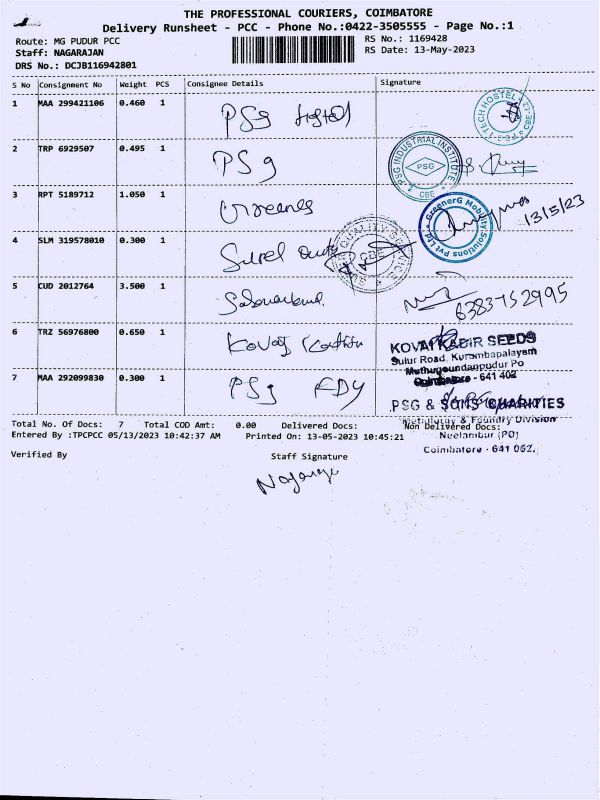 THE PROFESSIONAL COURIERS, COIMBATORE
Delivery Runsheet - PCC - Phone No.:0422-3505555 - Page No.:1
Route: MG PUDUR PCC
Staff: NAGARAJAN
DRS No.: DCJB116942801
RS No.: 1169428
RS Date: 13-May-2023
S No Consignment No Weight PCS Consignee Details Signature
1 MAA 299421106 0.460 1 PSg Hostel
TECH HOSTEL
2 TRP 6929507 0.495 1 PSg
PSG INDUSTRIAL INSTITUTE
PSG
CBE
3 RPT 5189712 1.050 1 Greenes
GreenerG Mobility Solutions Pvt Ltd
13/5/23
4 SLM 319578010 0.300 1
QUALITY
5 CUD 2012764 3.500 1
6383752995
6 TRZ 56976800 0.650 1 Kovai
KOVAI KADIR SEEDS
Sulur Road, Kurumbapalayam
Muthugoundanpudur Po
Coimbatore - 641 402
7 MAA 292099830 0.300 1 PSg FDY
PSG & SONS CHARITIES
Metallurgy & Foundry Division
Neelambur (PO)
Coimbatore - 641 062.
Total No. Of Docs: 7 Total COD Amt: 0.00 Delivered Docs: Non Delivered Docs:
Entered By :TPCPCC 05/13/2023 10:42:37 AM Printed On: 13-05-2023 10:45:21
Verified By Staff Signature